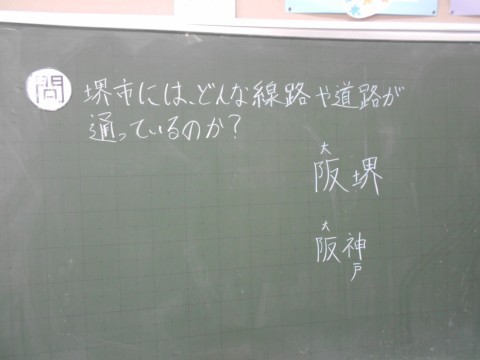 問 堺市には、どんな線路や道路が
通っているのか？
大
阪堺
大
阪神
戸